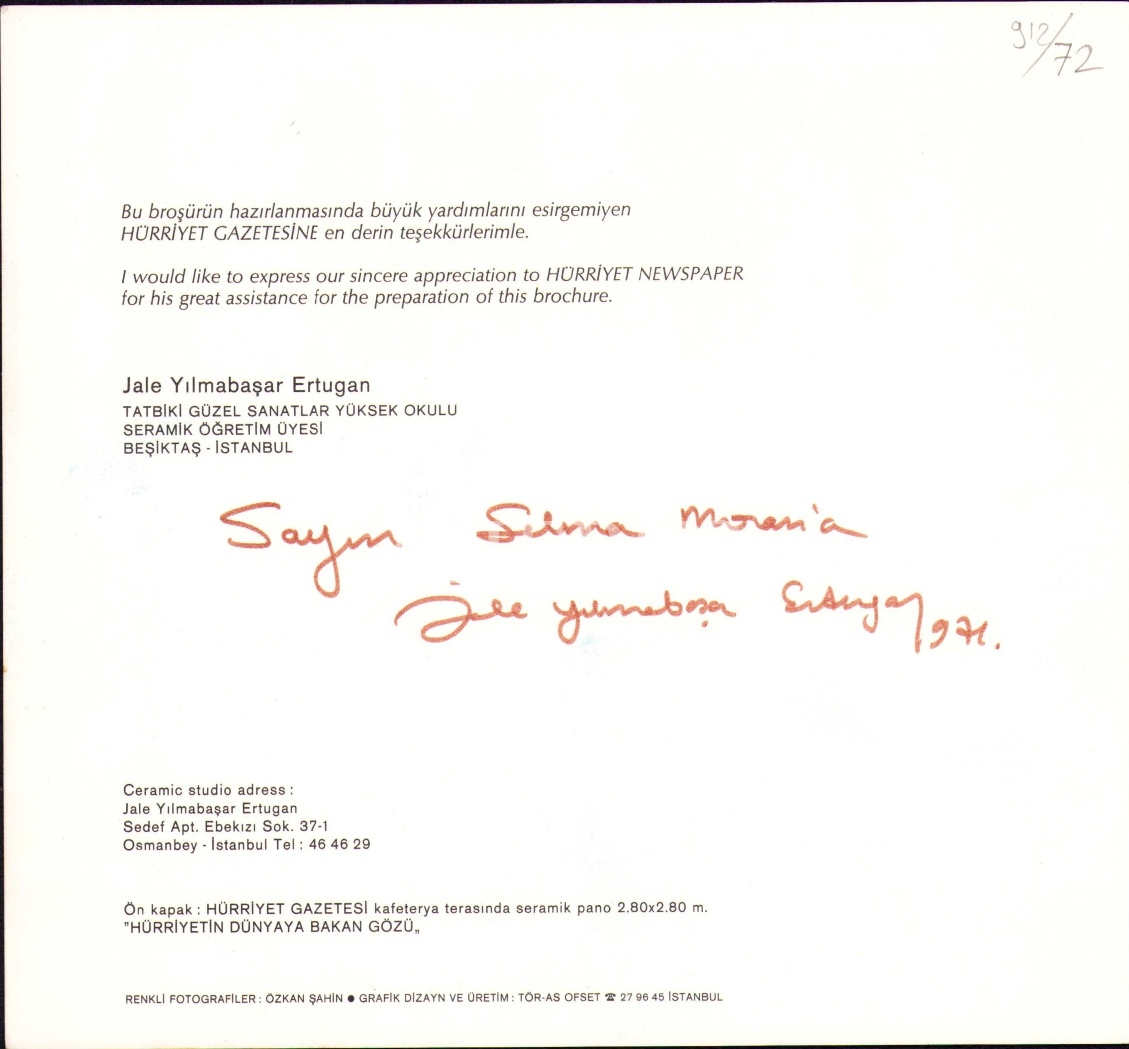 912/72
Bu broşürün hazırlanmasında büyük yardımlarını esirgemiyen
HÜRRİYET GAZETESİNE en derin teşekkürlerimle.
I would like to express our sincere appreciation to HÜRRİYET NEWSPAPER
for his great assistance for the preparation of this brochure.
Jale Yılmabaşar Ertugan
TATBİKİ GÜZEL SANATLAR YÜKSEK OKULU
SERAMİK ÖĞRETİM ÜYESİ
BEŞİKTAŞ - İSTANBUL
Sayın Selma Moran'a
Jale Yılmabaşar Ertugan 971.
Ceramic studio adress :
Jale Yılmabaşar Ertugan
Sedef Apt. Ebekızı Sok. 37-1
Osmanbey - İstanbul Tel : 46 46 29
Ön kapak : HÜRRİYET GAZETESİ kafeterya terasında seramik pano 2.80x2.80 m.
"HÜRRİYETİN DÜNYAYA BAKAN GÖZÜ„
RENKLİ FOTOGRAFİLER : ÖZKAN ŞAHİN ● GRAFİK DİZAYN VE ÜRETİM : TÖR-AS OFSET ☎ 27 96 45 İSTANBUL